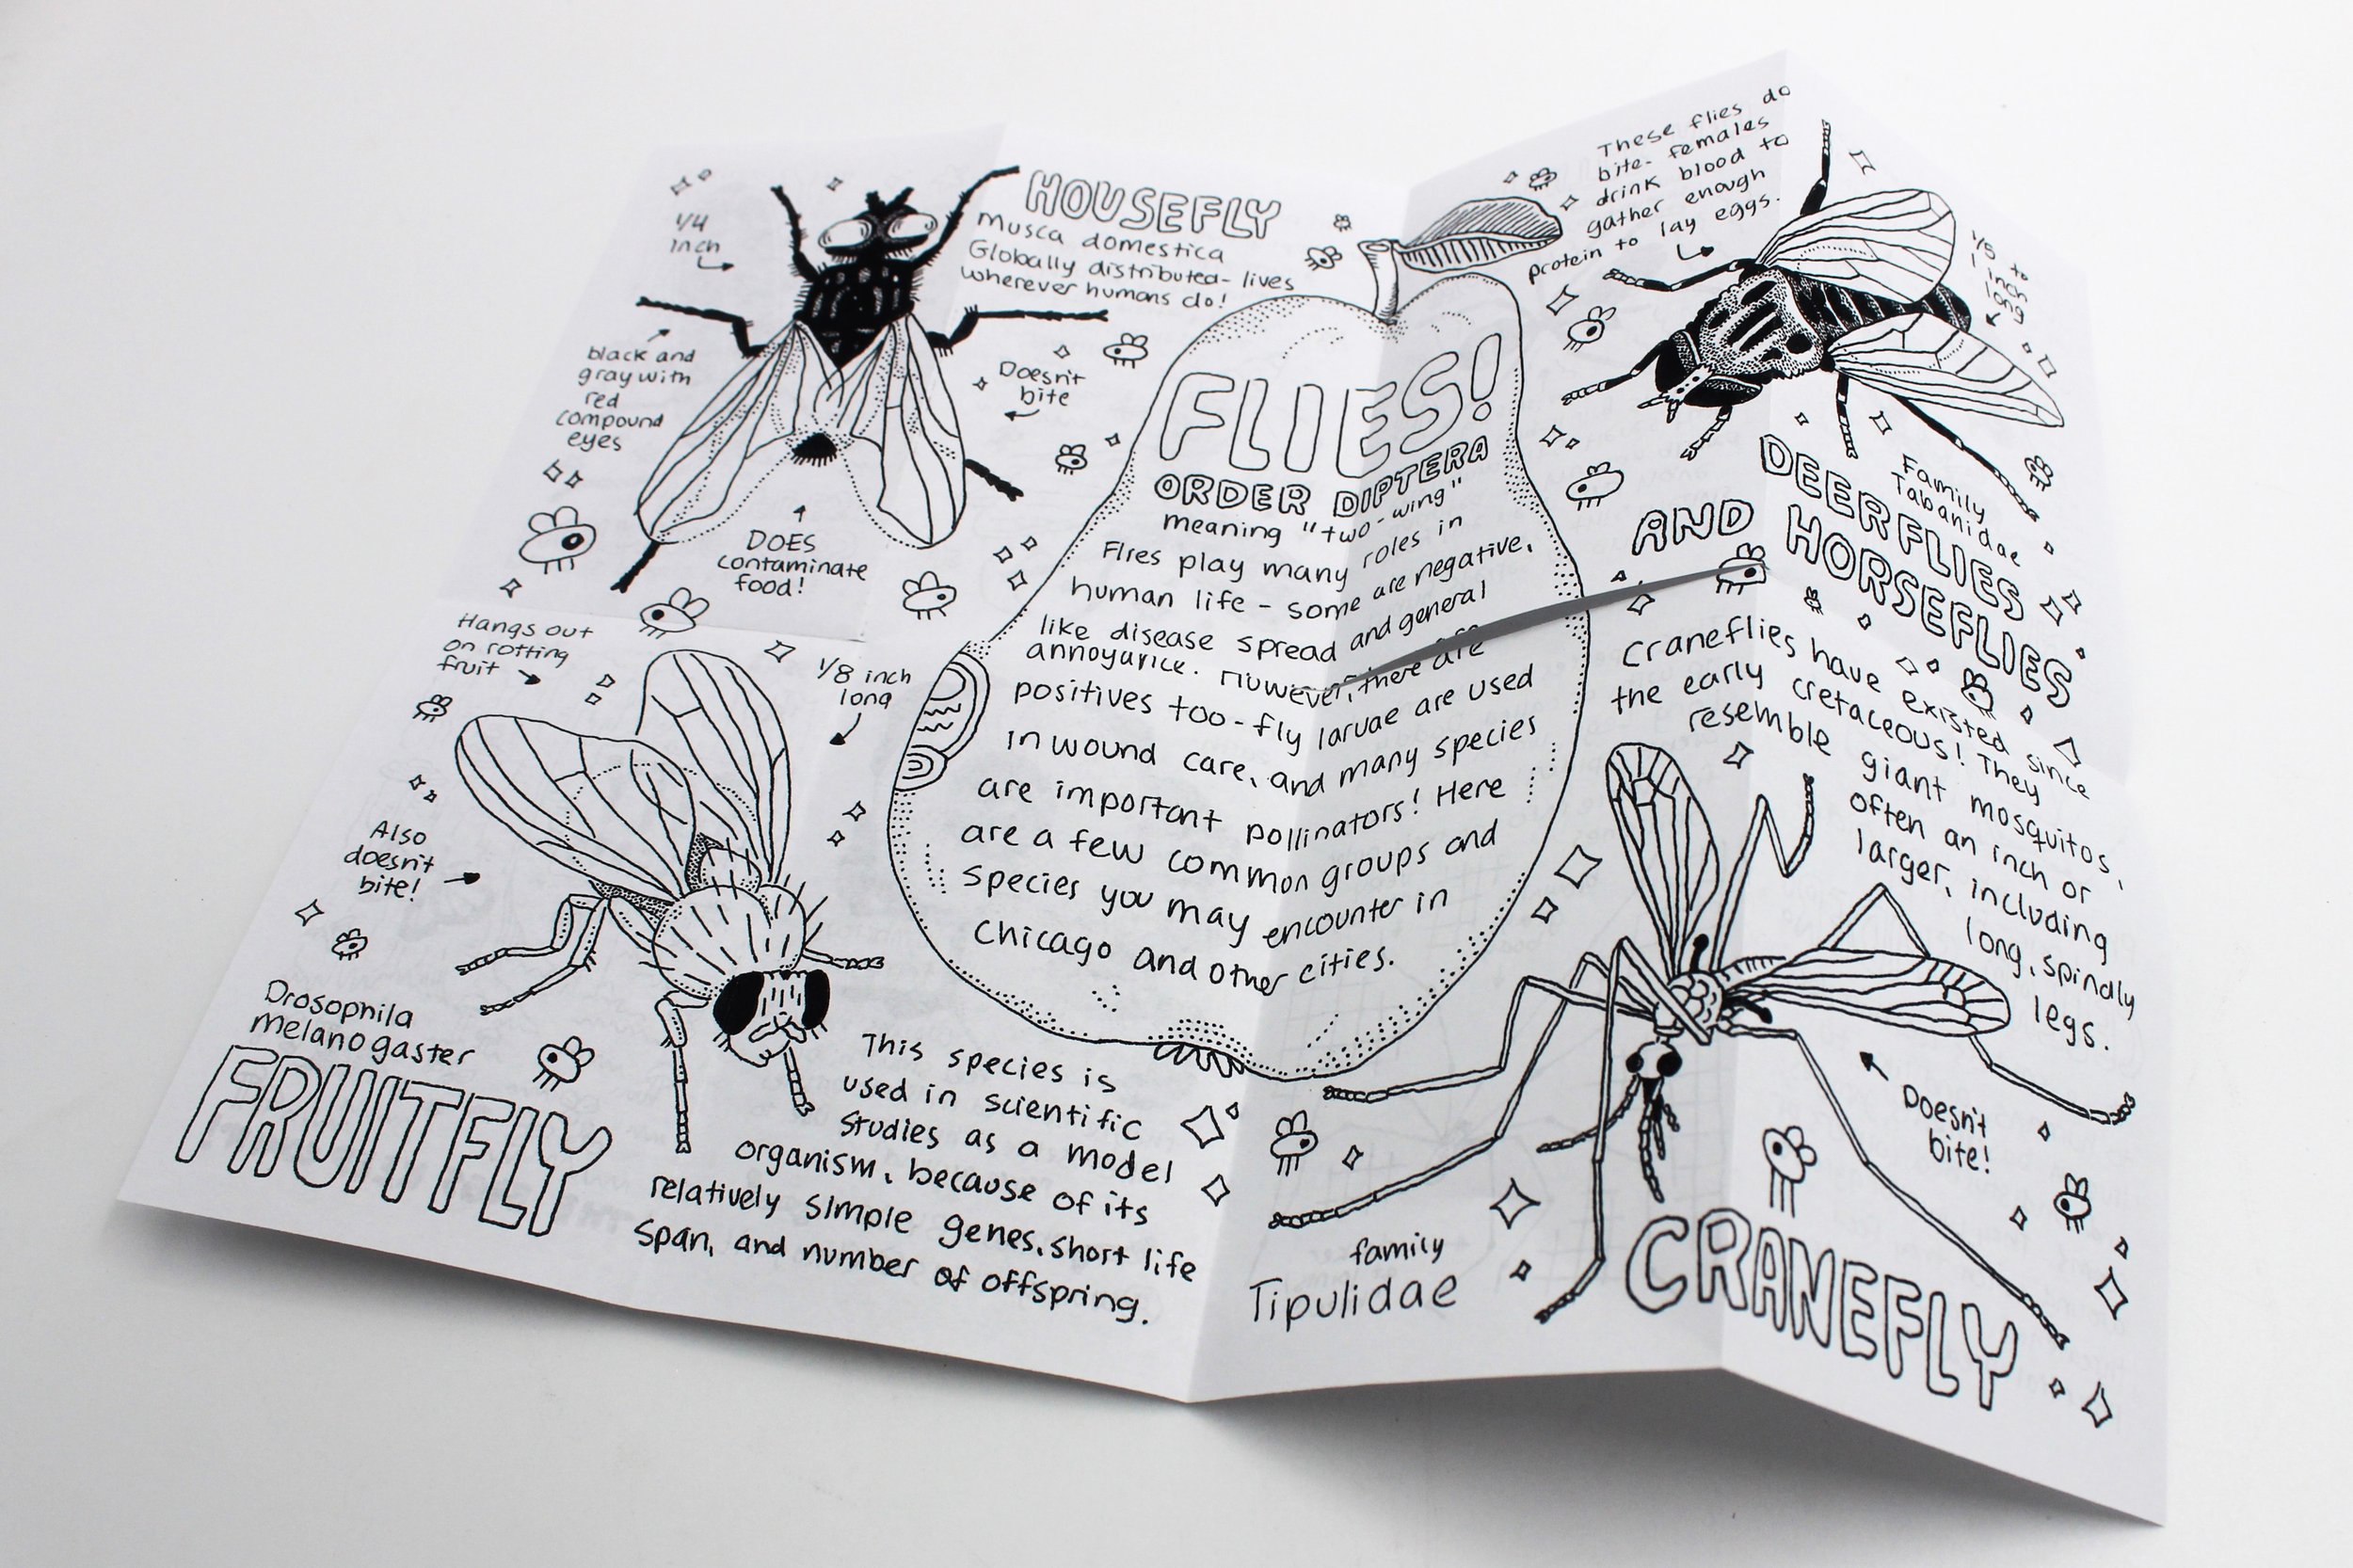 HOUSEFLY
Musca domestica
Globally distributed- lives
wherever humans do!
1/4
inch
black and
gray with
red
compound
eyes
Doesn't
bite
DOES
contaminate
food!
FLIES!
ORDER DIPTERA
meaning "two-wing"
Flies play many roles in
human life - some are negative,
like disease spread and general
annoyance. However, there are
positives too - fly larvae are used
in wound care, and many species
are important pollinators! Here
are a few common groups and
species you may encounter in
Chicago and other cities.
These flies do
bite- females
drink blood to
gather enough
protein to lay eggs.
1/5 to
1 inch
long
Family
Tabanidae
DEERFLIES
AND HORSEFLIES
Hangs out
on rotting
fruit
1/8 inch
long
Also
doesn't
bite!
Drosophila
melanogaster
FRUITFLY
This species is
used in scientific
studies as a model
organism, because of its
relatively simple genes, short life
span, and number of offspring.
Craneflies have existed since
the early cretaceous! They
resemble giant mosquitos,
often an inch or
larger, including
long, spindly
legs.
Doesn't
bite!
family
Tipulidae
CRANEFLY